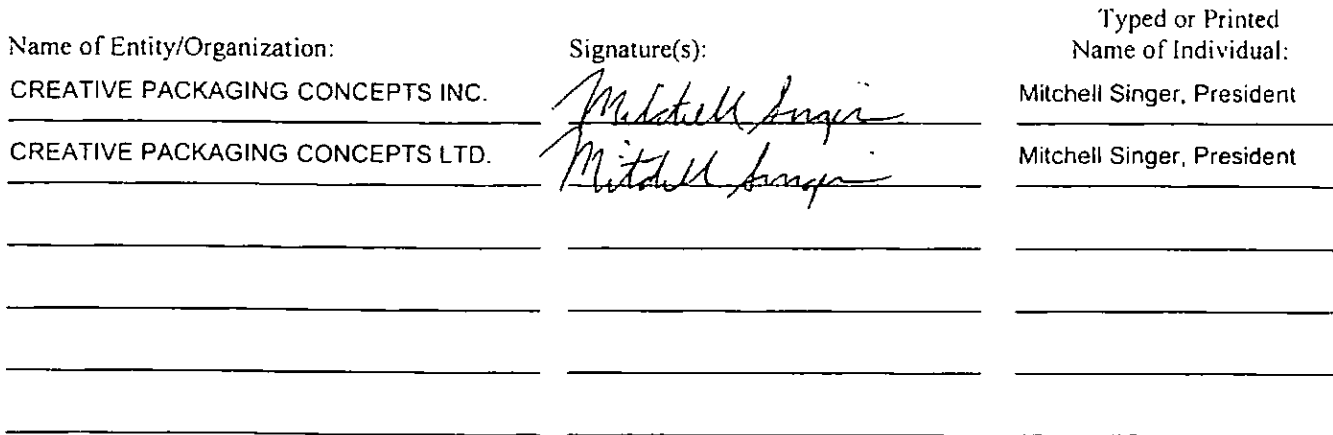 Typed or Printed
Name of Entity/Organization: Signature(s): Name of Individual:
CREATIVE PACKAGING CONCEPTS INC. Mitchell Singer Mitchell Singer, President
CREATIVE PACKAGING CONCEPTS LTD. Mitchell Singer Mitchell Singer, President